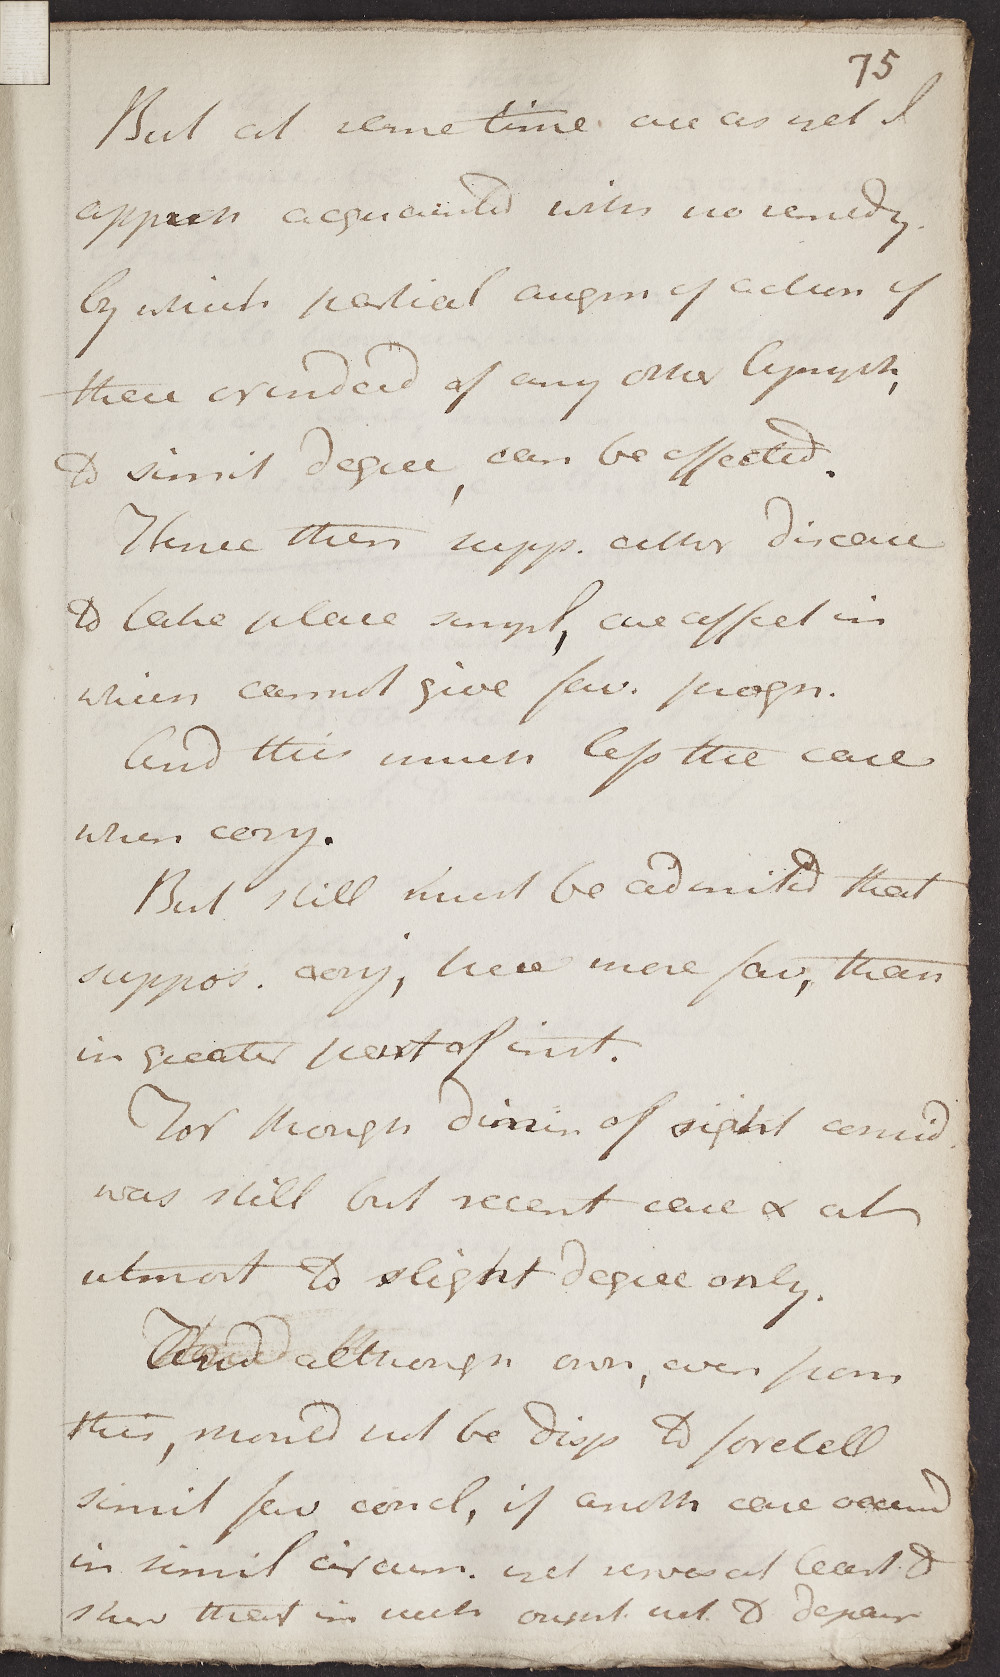 75
But at same time are as yet I
appreh acquainted with no remedy
by which partial augm of action of
these or indeed of any other lymph,
to simil degree, can be effected.
Hence then supp. other disease
to take place simpl, are affect in
which cannot give fav. progn.
And this much less the case
when conj.
But still must be admitted that
suppos. conj, here more fav, than
in greater part of inst.
For though dimin of sight consid.
was still but recent case & at
utmost to slight degree only.
And although own, even from
this, should not be disp to foretell
simil fav concl, if anoth case occurred
in simil circum. yet serves at least to
shew that in such ought not to despair